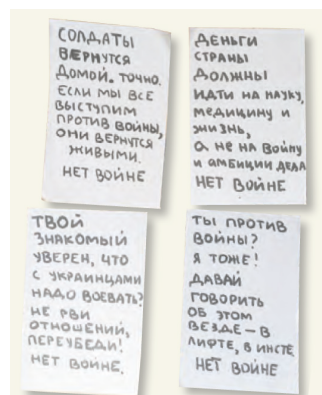 СОЛДАТЫ
ВЕРНУТСЯ
ДОМОЙ. ТОЧНО.
ЕСЛИ МЫ ВСЕ
ВЫСТУПИМ
ПРОТИВ ВОЙНЫ,
ОНИ ВЕРНУТСЯ
ЖИВЫМИ.
НЕТ ВОЙНЕ
ДЕНЬГИ
СТРАНЫ
ДОЛЖНЫ
ИДТИ НА НАУКУ,
МЕДИЦИНУ И
ЖИЗНЬ,
А НЕ НА ВОЙНУ
И АМБИЦИИ ДЕДА
НЕТ ВОЙНЕ
ТВОЙ
ЗНАКОМЫЙ
УВЕРЕН, ЧТО
С УКРАИНЦАМИ
НАДО ВОЕВАТЬ?
НЕ РВИ
ОТНОШЕНИЙ,
ПЕРЕУБЕДИ!
НЕТ ВОЙНЕ.
ТЫ ПРОТИВ
ВОЙНЫ?
Я ТОЖЕ!
ДАВАЙ
ГОВОРИТЬ
ОБ ЭТОМ
ВЕЗДЕ – В
ЛИФТЕ, В ИНСТЕ
НЕТ ВОЙНЕ